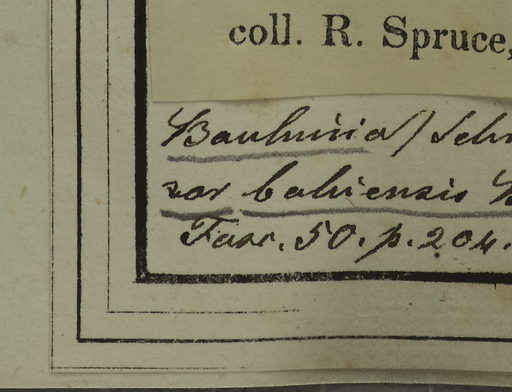 coll. R. Spruce,
Bauhinia (Schn
var bahiensis B
Fasc. 50. p. 204.